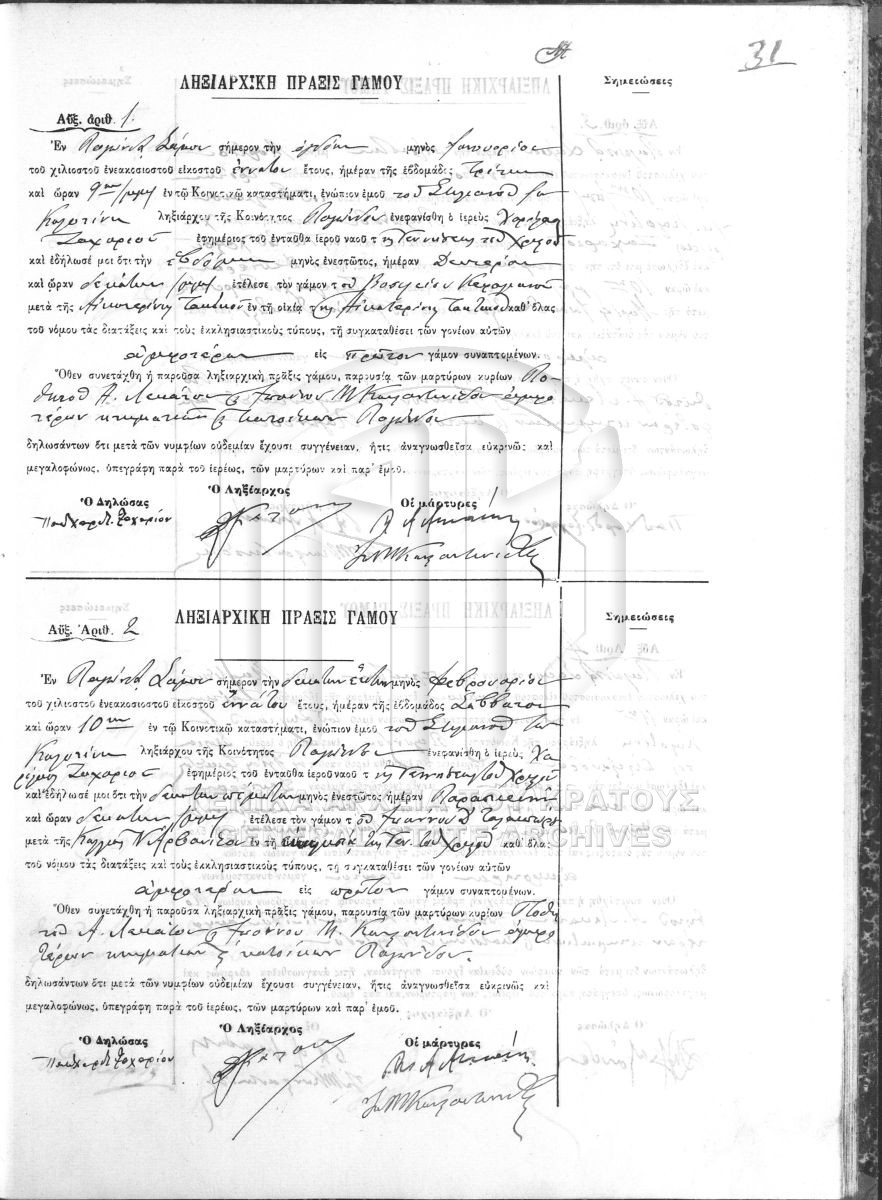 31
ΛΗΞΙΑΡΧΙΚΗ ΠΡΑΞΙΣ ΓΑΜΟΥ
Σημειώσεις
Αὔξ. ἀριθ. 1.
Ἐν Σάμου σήμερον τὴν ὀγδόην μηνὸς Ἰανουαρίου
τοῦ χιλιοστοῦ ἐνεακοσιοστοῦ εἰκοστοῦ ἐννάτου ἔτους, ἡμέραν τῆς ἑβδομάδος Τρίτην
καὶ ὥραν 9ην π.μ. ἐν τῷ Κοινοτικῷ καταστήματι, ἐνώπιον ἐμοῦ τοῦ
ληξιάρχου τῆς Κοινότητος ἐνεφανίσθη ὁ ἱερεὺς
Ζαχαρίου ἐφημέριος τοῦ ἐνταῦθα ἱεροῦ ναοῦ τῆς Γεννήσεως τοῦ Χριστοῦ
καὶ ἐδήλωσέ μοι ὅτι τὴν ἑβδόμην μηνὸς ἐνεστῶτος, ἡμέραν Δευτέραν
καὶ ὥραν δεκάτην π.μ. ἐτέλεσε τὸν γάμον τοῦ Βασιλείου
μετὰ τῆς Αἰκατερίνης ἐν τῇ οἰκίᾳ τῆς Αἰκατερίνης καθ' ὅλας
τοῦ νόμου τὰς διατάξεις καὶ τοὺς ἐκκλησιαστικοὺς τύπους, τῇ συγκαταθέσει τῶν γονέων αὐτῶν
ἀμφοτέρων εἰς πρῶτον γάμον συναπτομένων.
Ὅθεν συνετάχθη ἡ παροῦσα ληξιαρχικὴ πρᾶξις γάμου, παρουσίᾳ τῶν μαρτύρων κυρίων Πο-
θητοῦ Α. Λεκάτου & Ἰωάννου Μ. Κωνσταντινίδου ἀμφο
τέρων κτηματιῶν & κατοίκων
δηλωσάντων ὅτι μετὰ τῶν νυμφίων οὐδεμίαν ἔχουσι συγγένειαν, ἥτις ἀναγνωσθεῖσα εὐκρινῶς καὶ
μεγαλοφώνως, ὑπεγράφη παρὰ τοῦ ἱερέως, τῶν μαρτύρων καὶ παρ' ἐμοῦ.
Ὁ Δηλώσας Ὁ Ληξίαρχος Οἱ μάρτυρες
ΛΗΞΙΑΡΧΙΚΗ ΠΡΑΞΙΣ ΓΑΜΟΥ
Σημειώσεις
Αὔξ. Ἀριθ. 2
Ἐν Σάμου σήμερον τὴν δεκάτην ἕκτην μηνὸς Φεβρουαρίου
τοῦ χιλιοστοῦ ἐνεακοσιοστοῦ εἰκοστοῦ ἐννάτου ἔτους, ἡμέραν τῆς ἑβδομάδος Σάββατον
καὶ ὥραν 10ην ἐν τῷ Κοινοτικῷ καταστήματι, ἐνώπιον ἐμοῦ τοῦ
ληξιάρχου τῆς Κοινότητος ἐνεφανίσθη ὁ ἱερεὺς
Ζαχαρίου ἐφημέριος τοῦ ἐνταῦθα ἱεροῦ ναοῦ τῆς Γεννήσεως τοῦ Χριστοῦ
καὶ ἐδήλωσέ μοι ὅτι τὴν δεκάτην πέμπτην μηνὸς ἐνεστῶτος ἡμέραν Παρασκευὴν
καὶ ὥραν δεκάτην π.μ. ἐτέλεσε τὸν γάμον τοῦ Ἰωάννου Δ.
μετὰ τῆς Ν. Ἀρβανίτου ἐν τῇ τῆς Γεν. τοῦ Χριστοῦ καθ' ὅλας
τοῦ νόμου τὰς διατάξεις καὶ τοὺς ἐκκλησιαστικοὺς τύπους, τῇ συγκαταθέσει τῶν γονέων αὐτῶν
ἀμφοτέρων εἰς πρῶτον γάμον συναπτομένων.
Ὅθεν συνετάχθη ἡ παροῦσα ληξιαρχικὴ πρᾶξις γάμου, παρουσίᾳ τῶν μαρτύρων κυρίων Ποθη
τοῦ Α. Λεκάτου & Ἰωάννου Μ. Κωνσταντινίδου ἀμφο
τέρων κτηματιῶν & κατοίκων
δηλωσάντων ὅτι μετὰ τῶν νυμφίων οὐδεμίαν ἔχουσι συγγένειαν, ἥτις ἀναγνωσθεῖσα εὐκρινῶς καὶ
μεγαλοφώνως, ὑπεγράφη παρὰ τοῦ ἱερέως, τῶν μαρτύρων καὶ παρ' ἐμοῦ.
Ὁ Δηλώσας Ὁ Ληξίαρχος Οἱ μάρτυρες
ΓΕΝΙΚΑ ΑΡΧΕΙΑ ΤΟΥ ΚΡΑΤΟΥΣ
GENERAL STATE ARCHIVES